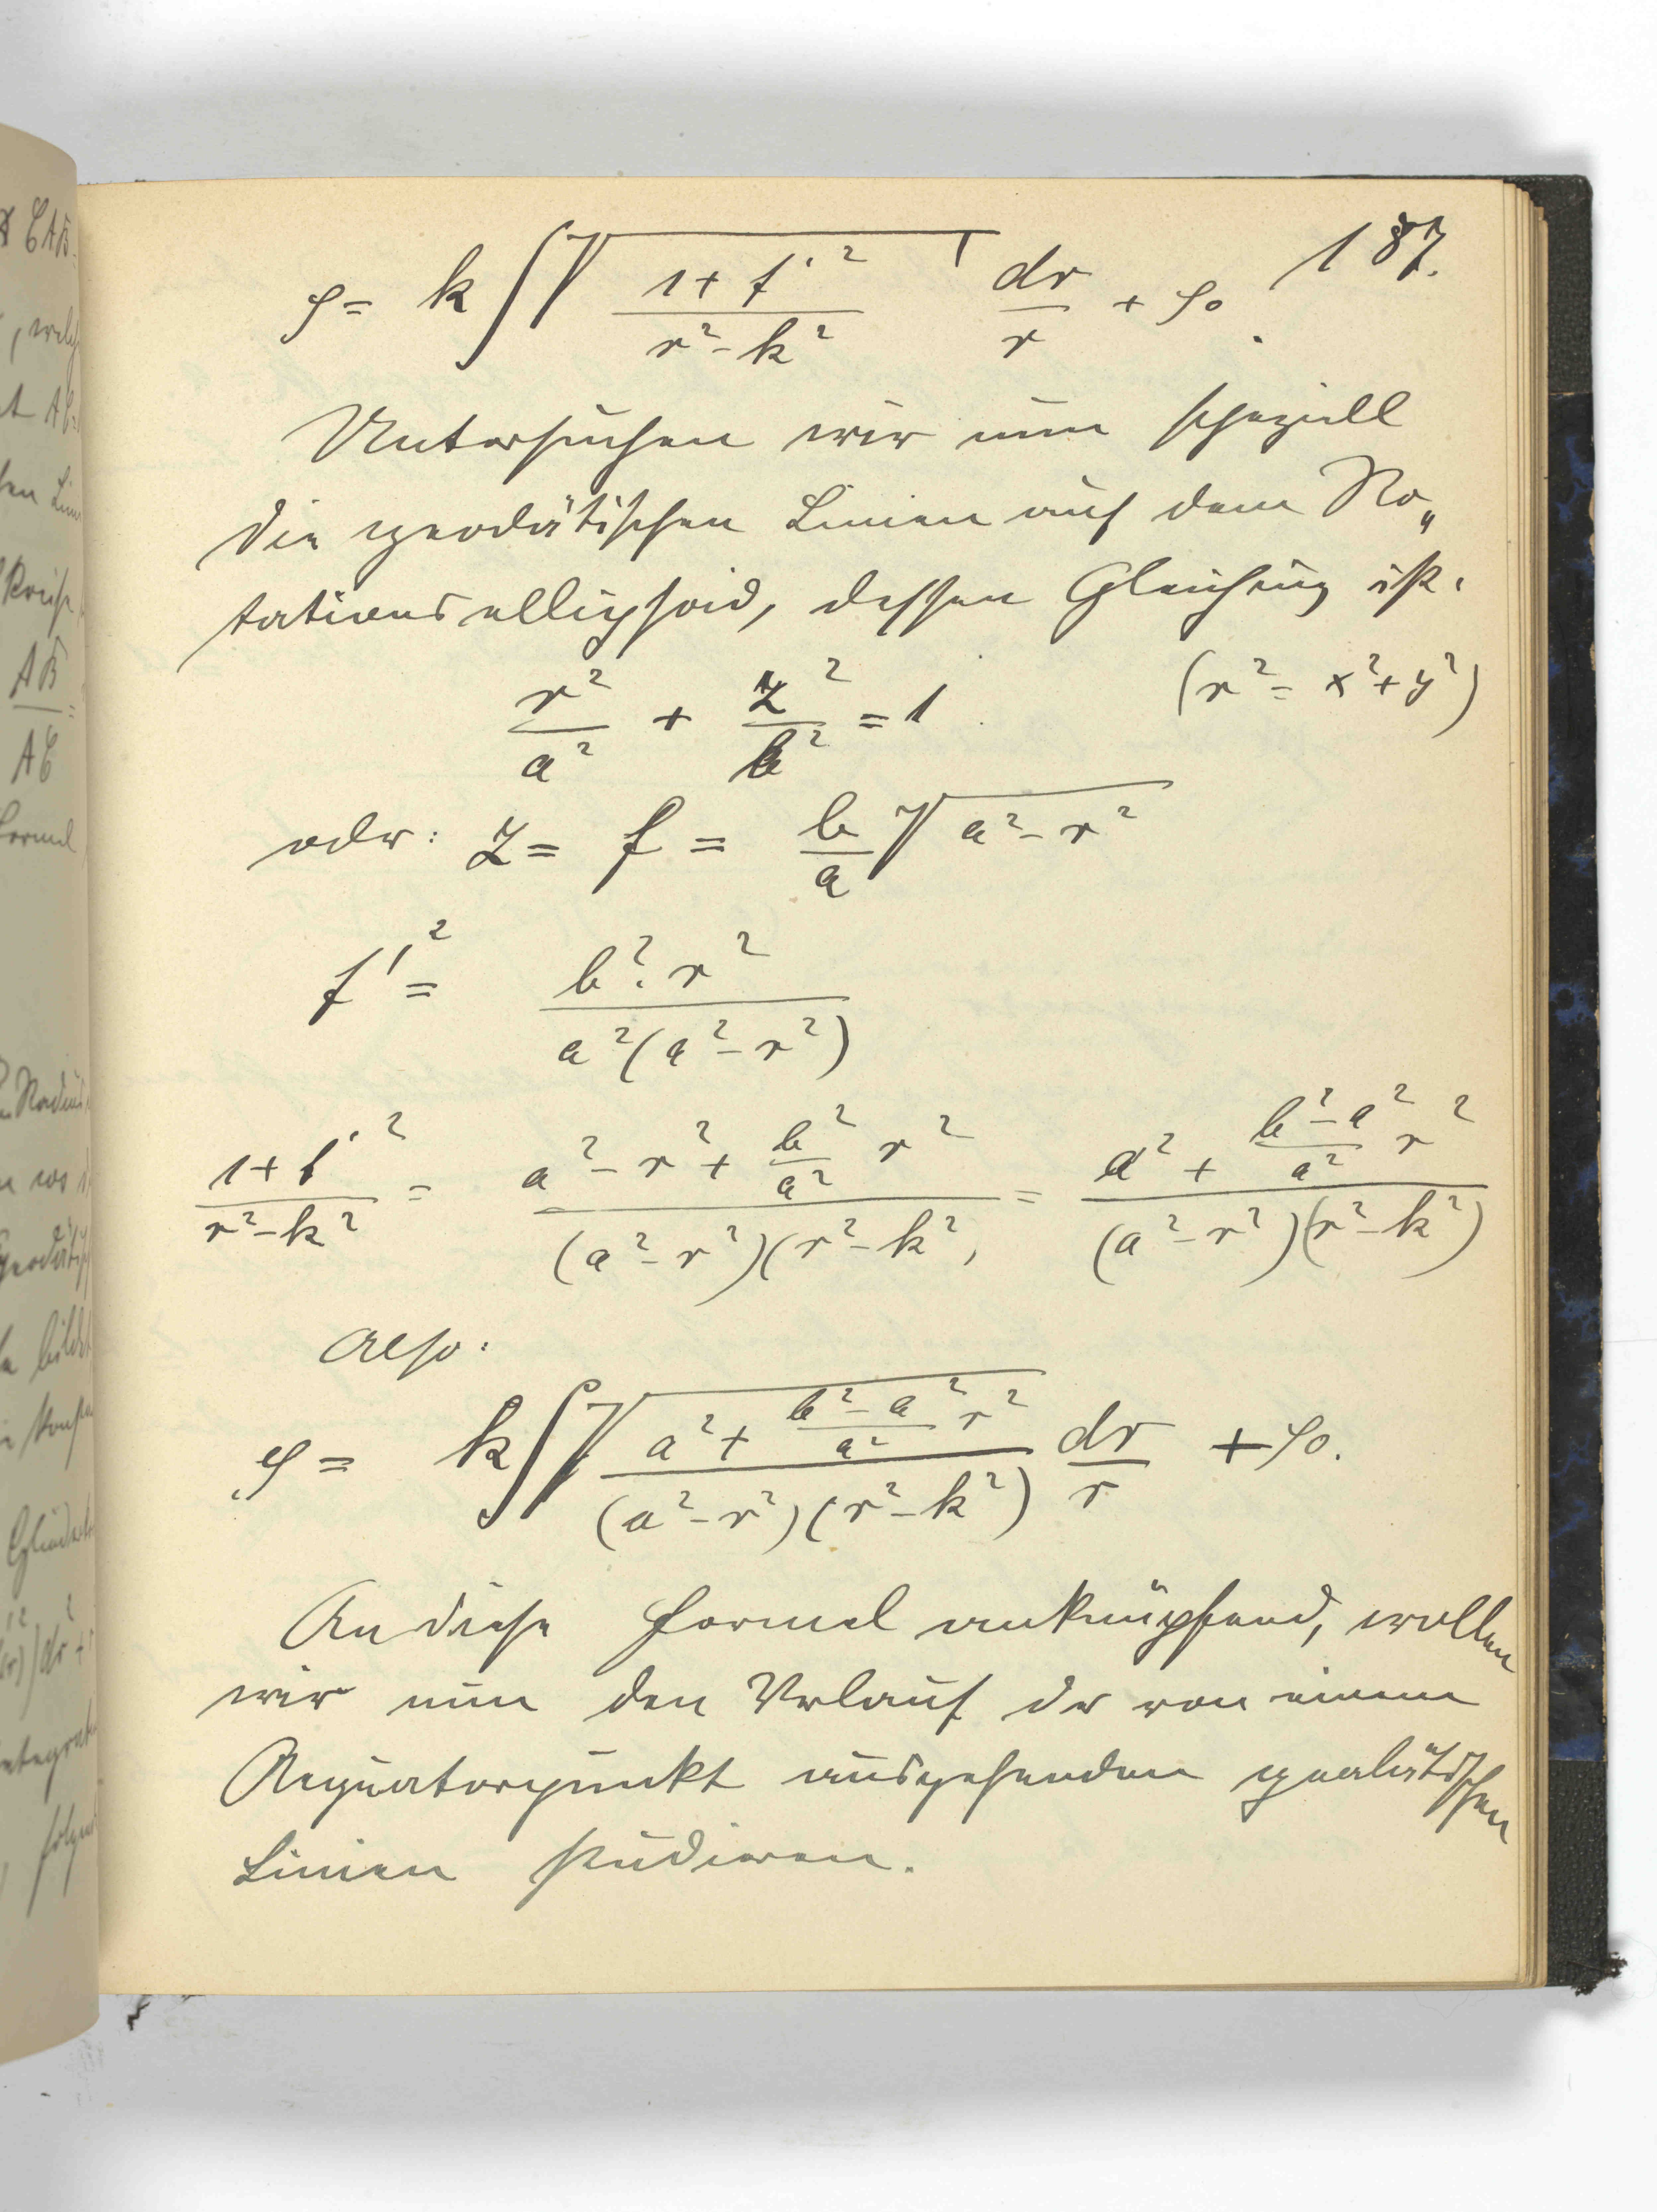 187.
φ = k ∫ √((1 + f'²)/(r² - k²)) dr/r + φ₀.
Untersuchen wir nun speziell
die geodätischen Linien auf dem Ro„
tationsellipsoid, dessen Gleichung ist:
r²/a² + z²/b² = 1. (r² = x² + y²)
oder: z = f = b/a √(a² - r²)
f'² = (b². r²)/(a²(a² - r²))
(1 + f'²)/(r² - k²) = (a² - r² + b²/a² r²)/((a² - r²)(r² - k²) = (a² + (b² - a²)/a² r²)/((a² - r²)(r² - k²))
Also:
φ = k ∫ √((a² + (b² - a²)/a² r²)/((a² - r²)(r² - k²))) dr/r + φ₀.
An diese Formel anknüpfend, wollen
wir nun den Verlauf der von einem
Aequatorpunkt ausgehenden geodätischen
Linien studieren.